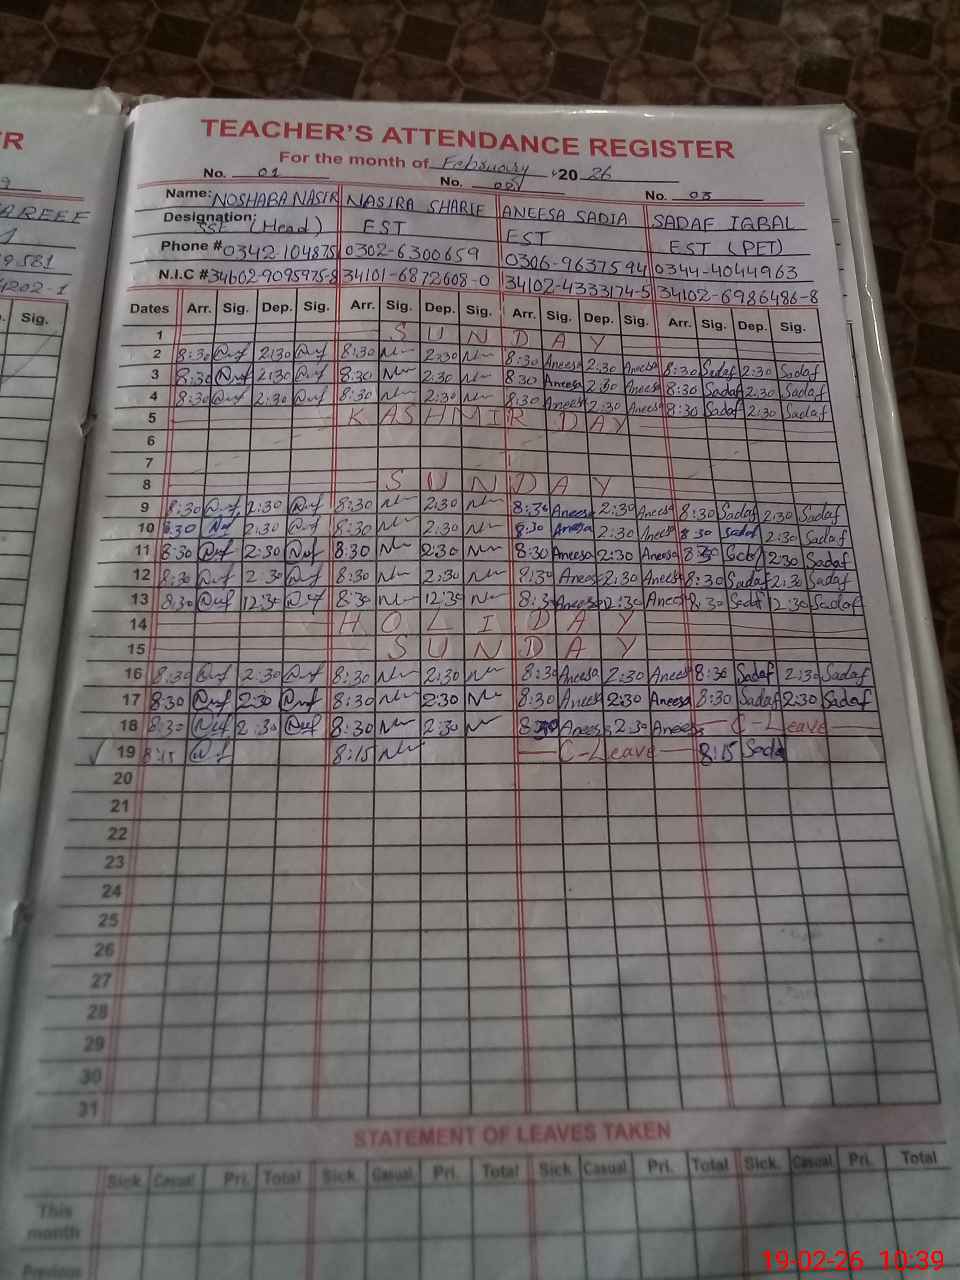 TEACHER'S ATTENDANCE REGISTER
For the month of February 20 26
No. 01 No. No. 03
Name: NOSHABA NASIR NASIRA SHARIF ANEESA SADIA SADAF IQBAL
Designation: SSE (Head) EST EST EST (PET)
Phone # 0342-104875 0302-6300659 0306-9637594 0344-4044963
N.I.C # 34602-9095975-8 34101-6872608-0 34102-4333174-5 34102-6986486-8
Dates Arr. Sig. Dep. Sig. Arr. Sig. Dep. Sig. Arr. Sig. Dep. Sig. Arr. Sig. Dep. Sig.
1 SUNDAY
2 8:30 2:30 8:30 2:30 8:30 Aneesa 2:30 Aneesa 8:30 Sadaf 2:30 Sadaf
3 8:30 2:30 8:30 2:30 8:30 Aneesa 2:30 Aneesa 8:30 Sadaf 2:30 Sadaf
4 8:30 2:30 8:30 2:30 8:30 Aneesa 2:30 Aneesa 8:30 Sadaf 2:30 Sadaf
5 KASHMIR DAY
6
7
8 SUNDAY
9 8:30 2:30 8:30 2:30 8:30 Aneesa 2:30 Aneesa 8:30 Sadaf 2:30 Sadaf
10 8:30 2:30 8:30 2:30 8:30 Aneesa 2:30 Aneesa 8:30 Sadaf 2:30 Sadaf
11 8:30 2:30 8:30 2:30 8:30 Aneesa 2:30 Aneesa 8:30 Sadaf 2:30 Sadaf
12 8:30 2:30 8:30 2:30 8:30 Aneesa 2:30 Aneesa 8:30 Sadaf 2:30 Sadaf
13 8:30 12:30 8:30 12:30 8:30 Aneesa 12:30 Aneesa 8:30 Sadaf 12:30 Sadaf
14 HOLIDAY
15 SUNDAY
16 8:30 2:30 8:30 2:30 8:30 Aneesa 2:30 Aneesa 8:30 Sadaf 2:30 Sadaf
17 8:30 2:30 8:30 2:30 8:30 Aneesa 2:30 Aneesa 8:30 Sadaf 2:30 Sadaf
18 8:30 2:30 8:30 2:30 8:30 Aneesa 2:30 Aneesa C-Leave
19 8:15 8:15 C-Leave 8:15 Sadaf
20
21
22
23
24
25
26
27
28
29
30
31
STATEMENT OF LEAVES TAKEN
Sick Casual Pri. Total Sick. Casual Pri. Total Sick Casual Pri. Total Sick. Casual Pri. Total
This month
Previous
19-02-26 10:39